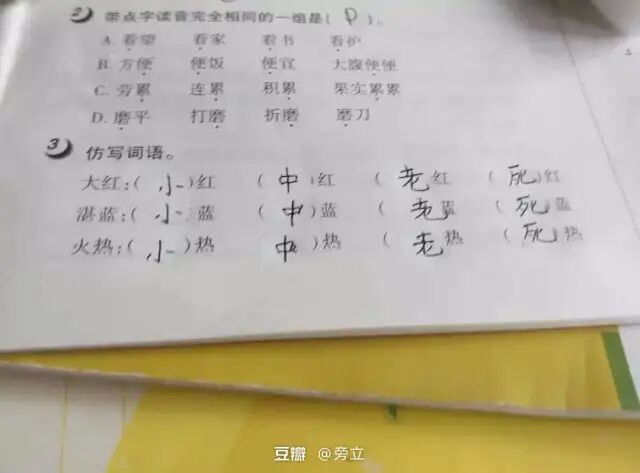 2 带点字读音完全相同的一组是( D )。
A. 看望 看家 看书 看护
B. 方便 便饭 便宜 大腹便便
C. 劳累 连累 积累 果实累累
D. 磨平 打磨 折磨 磨刀
3 仿写词语。
大红:( 小 )红 ( 中 )红 ( 老 红 ( 死 )红
湛蓝:( 小 )蓝 ( 中 )蓝 ( 老 蓝 ( 死 )蓝
火热:( 小 )热 中 )热 ( 老 热 ( 死 ) 热
豆瓣 @旁立